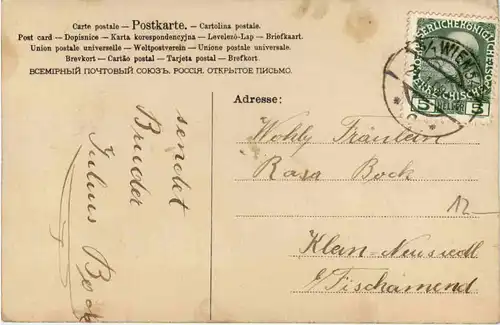 Carte postale – Postkarte. – Cartolina postale.
Post card – Dopisnice – Karta korespondencyjna – Levelező-Lap – Briefkaart.
Union postale universelle – Weltpostverein – Unione postale universale.
Brevkort – Cartão postal – Tarjeta postal – Brefkort.
ВСЕМІРНЫЙ ПОЧТОВЫЙ СОЮЗЪ. РОССІЯ. ОТКРЫТОЕ ПИСЬМО.
sendet
Bruder
Julius Bock
Adresse:
Wohlg Fräulein
Rosa Bock
Klein-Neusiedl
Fischamend
12
WIEN
5 HELLER 5